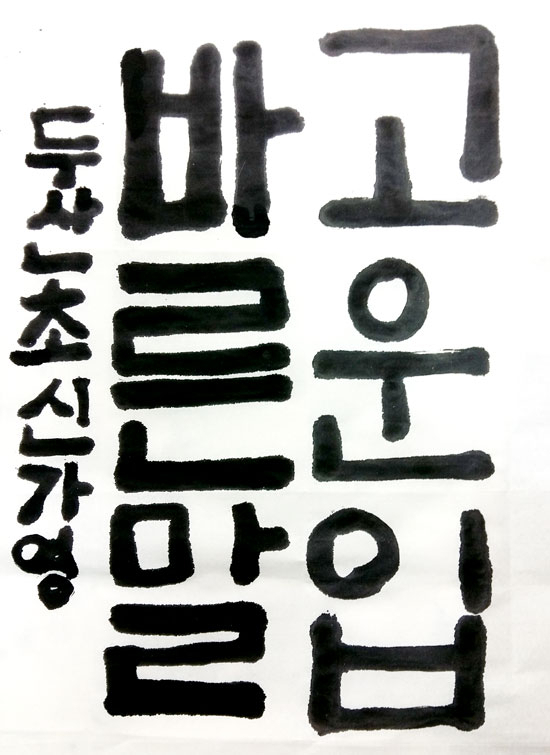 고운입
바른말
두산초신가영